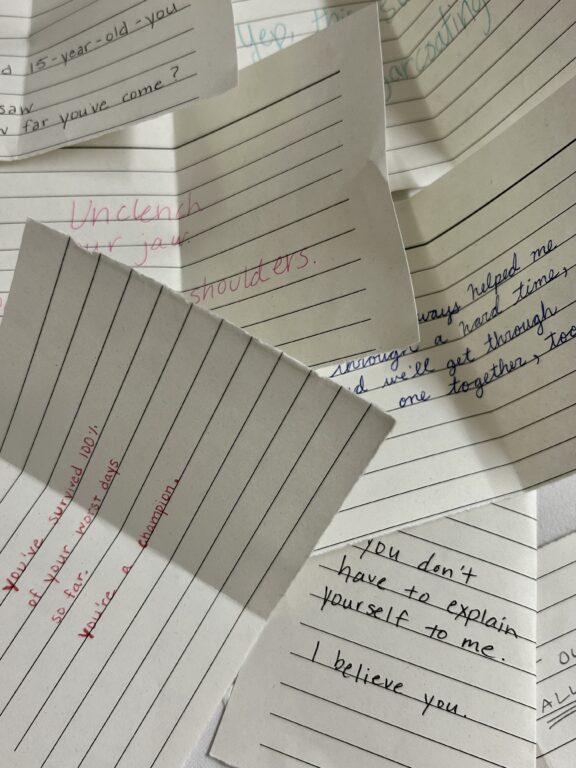 15-year-old-you
saw
far you've come?
Yep, this
coating
Unclench
jaw
shoulders.
helped me
through a hard time,
we'll get through
one together, too
you've survived 100%
of your worst days
so far.
you're a champion.
you don't
have to explain
yourself to me.
I believe you.